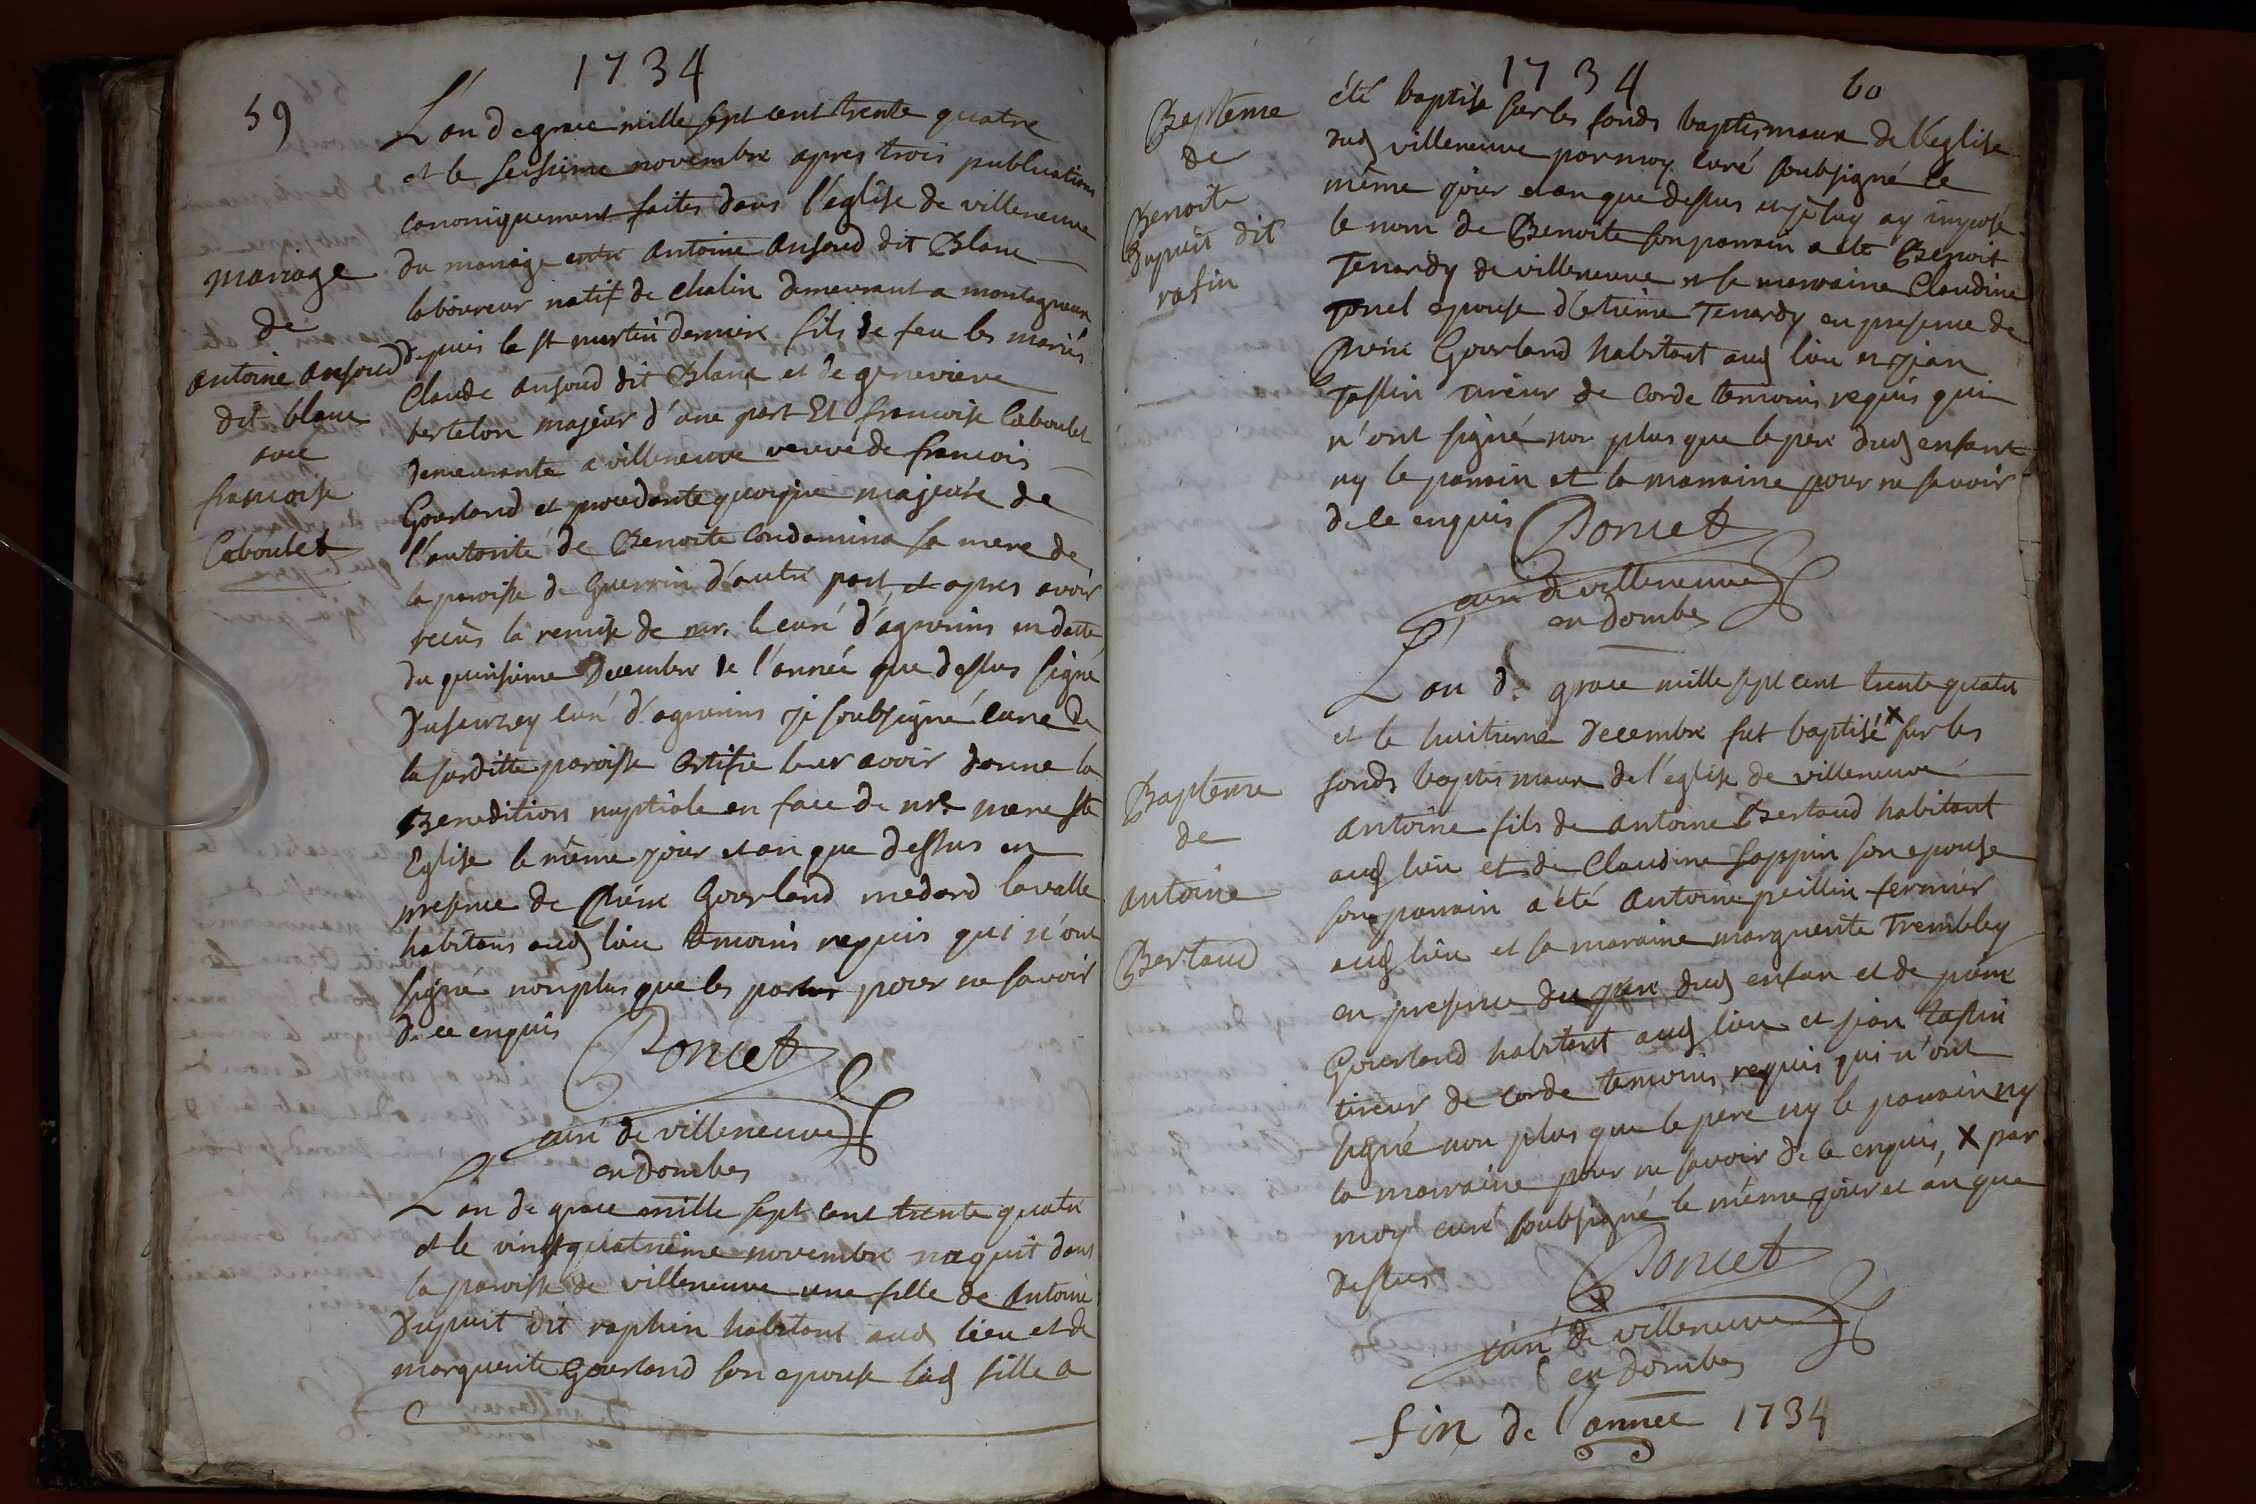 1734
59
L'an de grace mille sept cent trente quatre
et le seisieme novembre apres trois publications
canoniquement faites dans l'eglise de villeneuve
du mariage entre antoine ansoud dit Blanc
laboureur natif de chalin demeurant a montagneux
depuis la st martin derniere fils de feu les mariés
Claude ansoud dit Blanc et de genevieve
bertelon majeur d'une part Et francoise Caboulet
demeurante a villeneuve veuve de francois
Gourland et procedante quoyque majeure de
l'autorité de Benoite Condamina sa mere de
la paroisse de Guerrin d'autre part, et apres avoir
recûs la remise de mr. le curé d'agnerins en datte
du quinsieme Decembre de l'année que dessus signé
curé d'agnerins je soubsigné curé de
la susditte paroisse certifie leur avoir donne la
Benedition nuptiale en face de nre. mere ste
Eglise le même jour et an que dessus en
presence de Pierre Gourland medard lavalle
habitans aud lieu temoins requis qui n'ont
signé non plus que les parties pour ne savoir
de ce enquis Poncet
curé de villeneuve
en Dombes
mariage
de
antoine ansoud
dit blanc
avec
francoise
Caboulet
L'an de grace mille sept cent trente quatre
et le vingtquatrieme novembre naquit dans
la paroisse de villeneuve une fille de Antoine
Dupuit dit raphin habitant aud lieu et de
marguerite Gourland son epouse lad fille a
1734
60
été baptisé sur les fonds baptismaux de l'eglise
dud villeneuve par moy curé soubsigné le
même jour et an que dessus et je luy ay imposé
le nom de Benoite son parrain a eté Benoit
Tenardy de villeneuve et sa marraine Claudine
Tonel epouse d'etiene Tenardy en presence de
Pierre Gourland habitant aud lieu et jean
Tassin tireur de corde temoins requis qui
n'ont signé non plus que le pere dud enfant
ny le parrain et la marraine pour ne savoir
de ce enquis Poncet
curé de villeneuve
en Dombes
Baptême
de
Benoite
Dupuit dit
rafin
L'an de grace mille sept cent trente quatre
et le huitieme Decembre fut baptisé x sur les
fonds baptismaux de l'eglise de villeneuve
antoine fils de antoine Bertaud habitant
aud lieu et de Claudine Sappin son epouse
son parrain a été Antoine peillin fermier
aud lieu et sa maraine marguerite Trembley
en presence du pere dud enfan et de pierre
Gourland habitant aud lieu et jean tassin
tireur de corde temoins requis qui n'ont
signé non plus que le pere ny le parrain ny
la marraine pour ne savoir de ce enquis, x par
moy curé soubsigné le même jour et an que
dessus Poncet
curé de villeneuve
en Dombes
Baptême
de
antoine
Bertaud
fin de l'année 1734